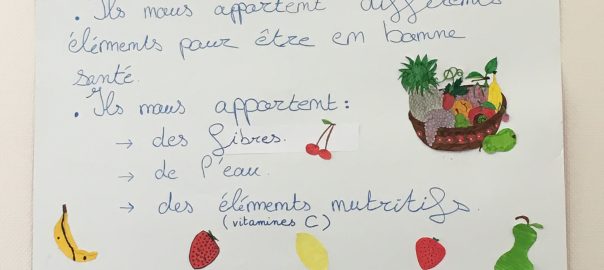 . Ils nous apportent différents
éléments pour être en bonne
santé.
. Ils nous apportent :
→ des fibres.
→ de l'eau.
→ des éléments nutritifs.
(vitamines C)